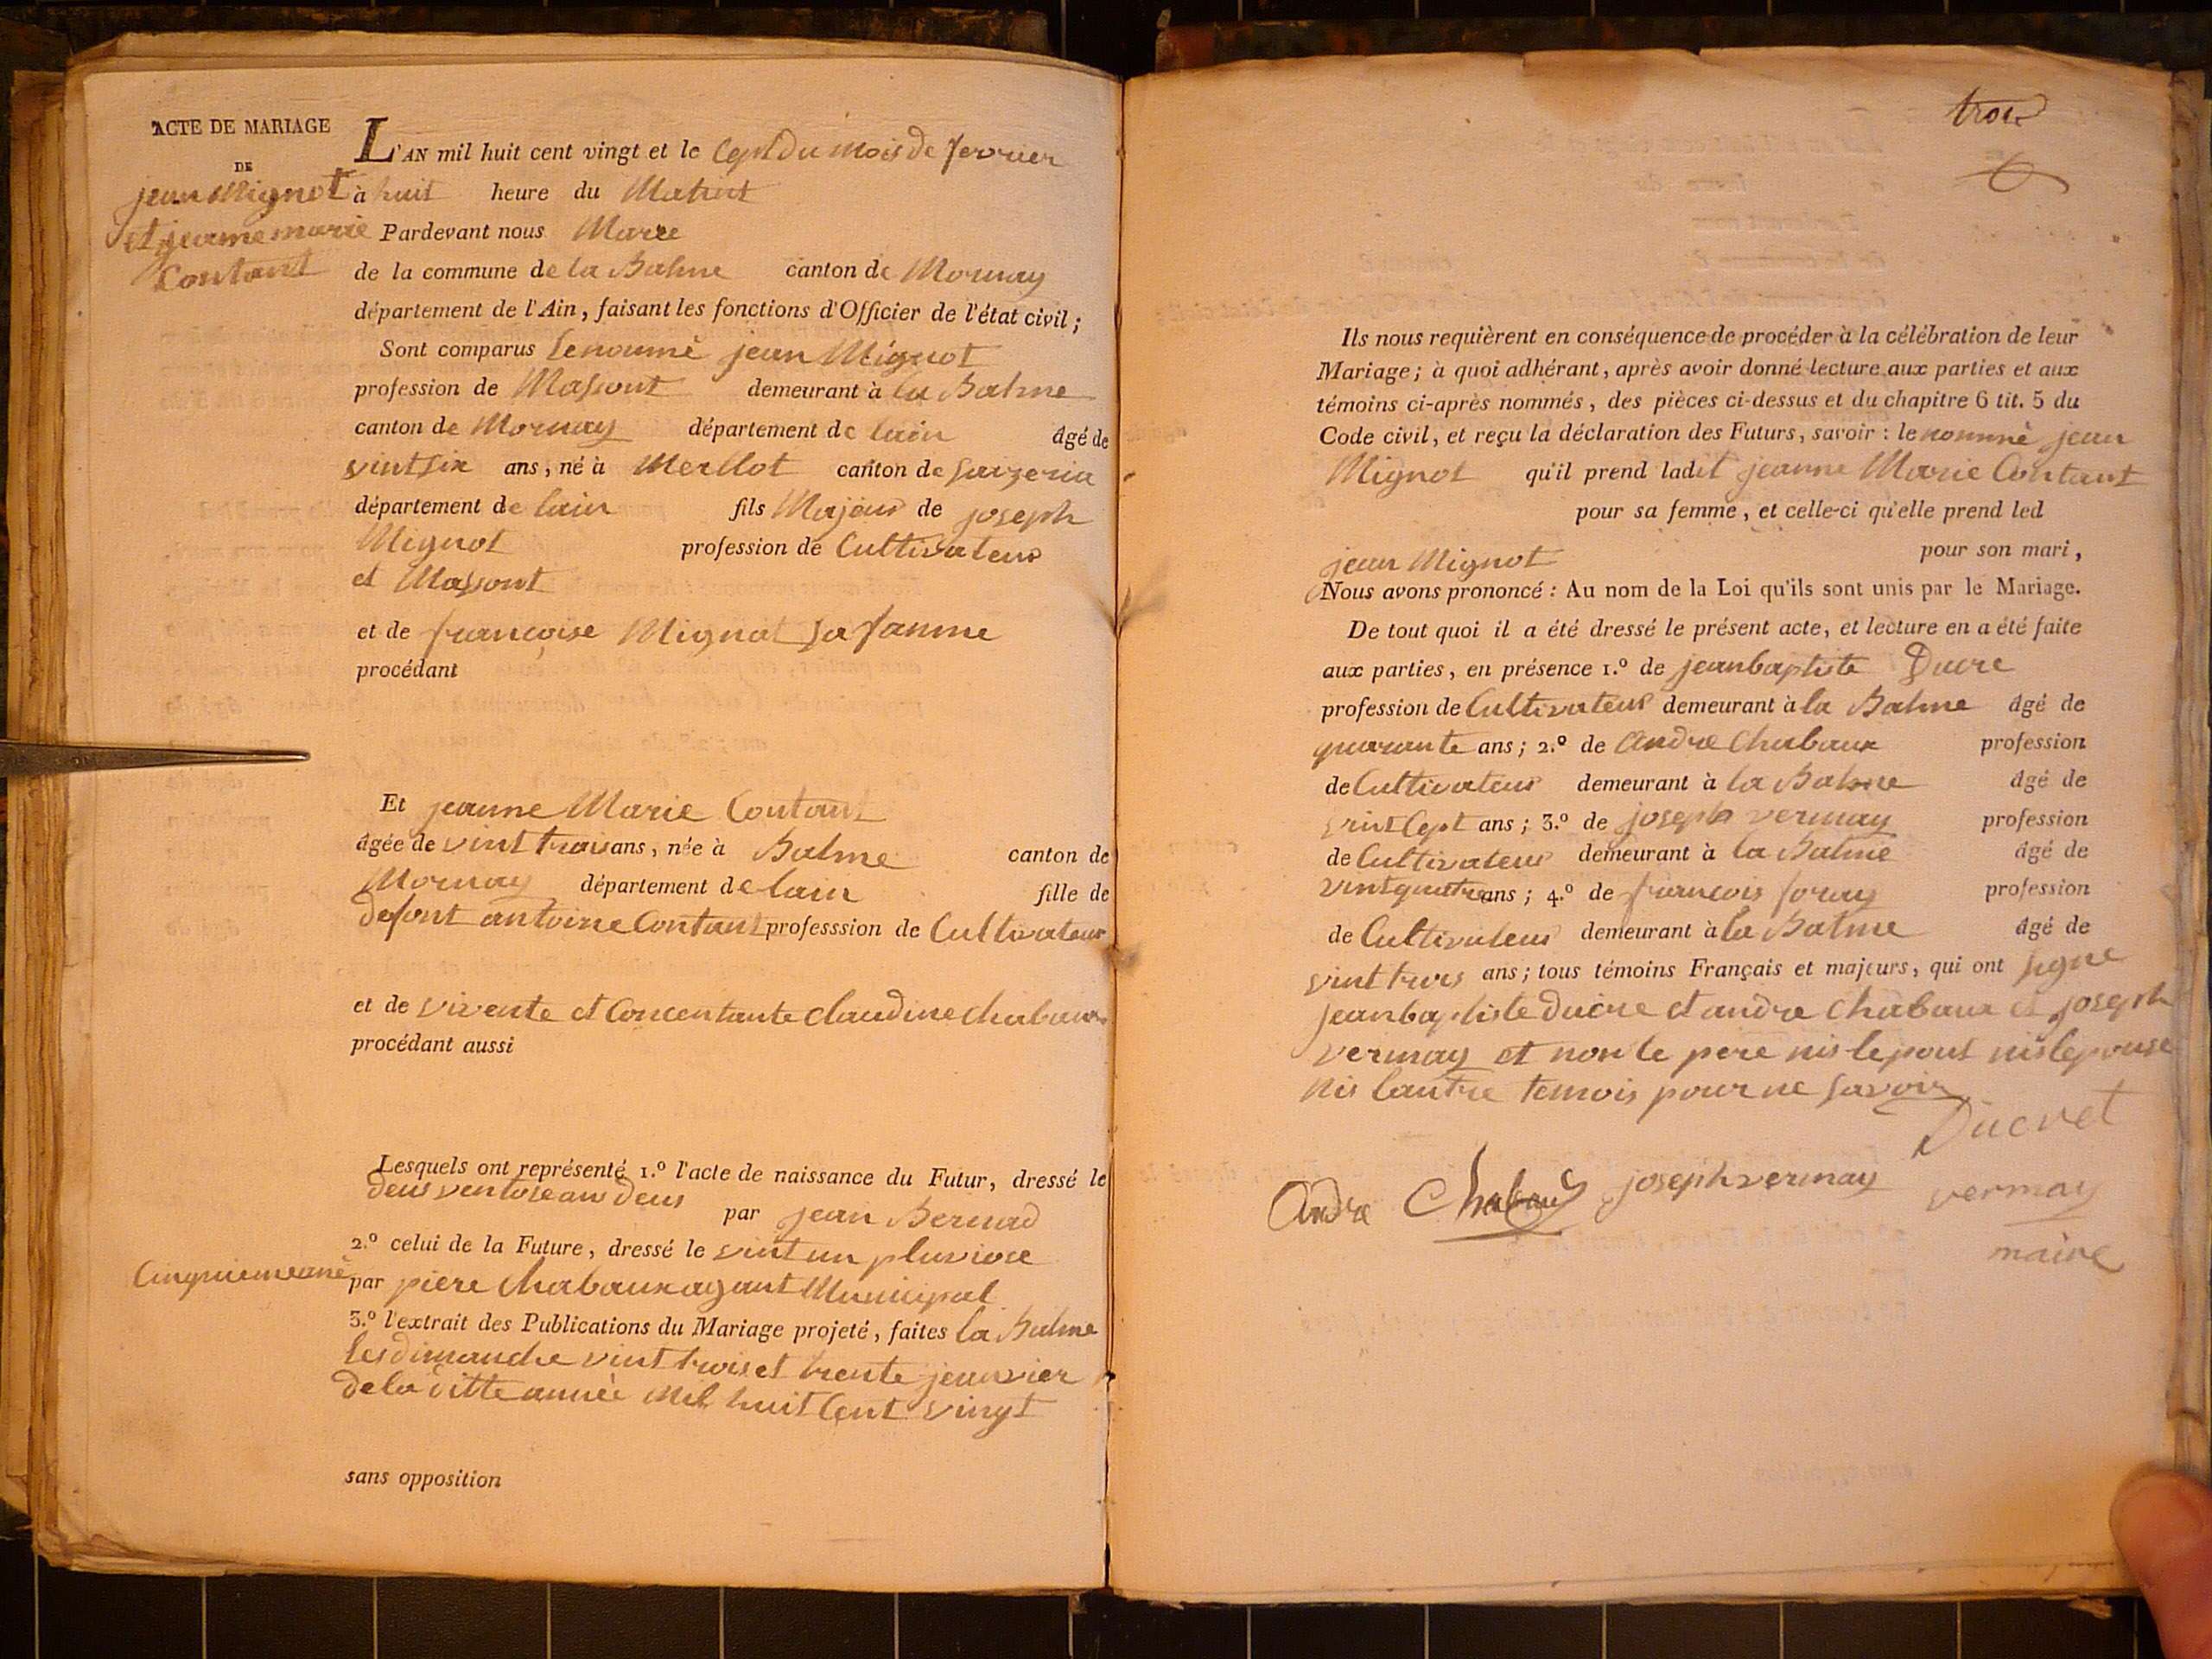 ACTE DE MARIAGE
DE
jean Mignot
et jeanne marie
Contant
L'AN mil huit cent vingt et le Cept du mois de fevrier
à huit heure du Matint
Pardevant nous Mare
de la commune de la Balme canton de Mornay
département de l'Ain, faisant les fonctions d'Officier de l'état civil;
Sont comparus lenommé jean Mignot
profession de Massont demeurant à la Balme
canton de Mornay département de lain âgé de
vintsix ans, né à Merllot canton de
département de lain fils Majeur de joseph
Mignot profession de Cultivateur
et Massont
et de françoise Mignot sa famme
procédant
Et jeanne Marie Contant
âgée de vint trois ans, née à Balme canton de
Mornay département de lain fille de
defont antoine Contant professsion de Cultivateur
et de vivente et Concentante claudine chabaux
procédant aussi
Lesquels ont représenté 1.º l'acte de naissance du Futur, dressé le
deus ventose an deus
par jean Bernad
2.º celui de la Future, dressé le vint un pluviose
Cinquiemeané
par piere chabaux agant Municipal
3.º l'extrait des Publications du Mariage projeté, faites la Balme
les dimanche vint trois et trente jeanvier
de la ditte année mil huit Cent vingt
sans opposition
trois
Ils nous requièrent en conséquence de procéder à la célébration de leur
Mariage; à quoi adhérant, après avoir donné lecture aux parties et aux
témoins ci-après nommés, des pièces ci-dessus et du chapitre 6 tit. 5 du
Code civil, et reçu la déclaration des Futurs, savoir: le nommé jean
Mignot qu'il prend ladit jeanne Marie Contant
pour sa femme, et celle-ci qu'elle prend led
jean Mignot pour son mari,
Nous avons prononcé: Au nom de la Loi qu'ils sont unis par le Mariage.
De tout quoi il a été dressé le présent acte, et lecture en a été faite
aux parties, en présence 1.º de jeanbaptiste Ducre
profession de Cultivateur demeurant à la Balme âgé de
quarante ans; 2.º de andre Chabaux profession
de Cultivateur demeurant à la Balme âgé de
vint Cept ans; 3.º de joseph vermay profession
de Cultivateur demeurant à la Balme âgé de
vintquatre ans; 4.º de francois foray profession
de Cultivateur demeurant à la Balme âgé de
vint trois ans; tous témoins Français et majeurs, qui ont signe
jeanbaptiste ducre et andre chabaux et joseph
vermay et non le pere nis lepout nis lepouse
nis lautre temois pour ne savoir
Ducret
andre Chabaud joseph vermay
vermay
maire